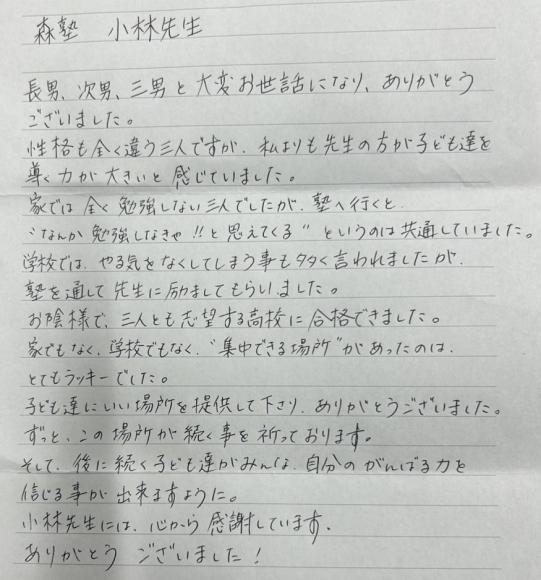 森塾 小林先生
長男、次男、三男と大変お世話になり、ありがとう
ございました。
性格も全く違う三人ですが、私よりも先生の方が子ども達を
導く力が大きいと感じていました。
家では全く勉強しない三人でしたが、塾へ行くと
"なんか勉強しなきゃ!!と思えてくる"というのは共通していました。
学校では、やる気をなくしてしまう事も多く言われましたが、
塾を通して先生に励ましてもらいました。
お陰様で、三人とも志望する高校に合格できました。
家でもなく、学校でもなく、"集中できる場所"があったのは、
とてもラッキーでした。
子ども達にいい場所を提供して下さり、ありがとうございました。
ずっと、この場所が続く事を祈っております。
そして、後に続く子ども達がみんな、自分のがんばる力を
信じる事が出来ますように。
小林先生には、心から感謝しています。
ありがとう ございました!